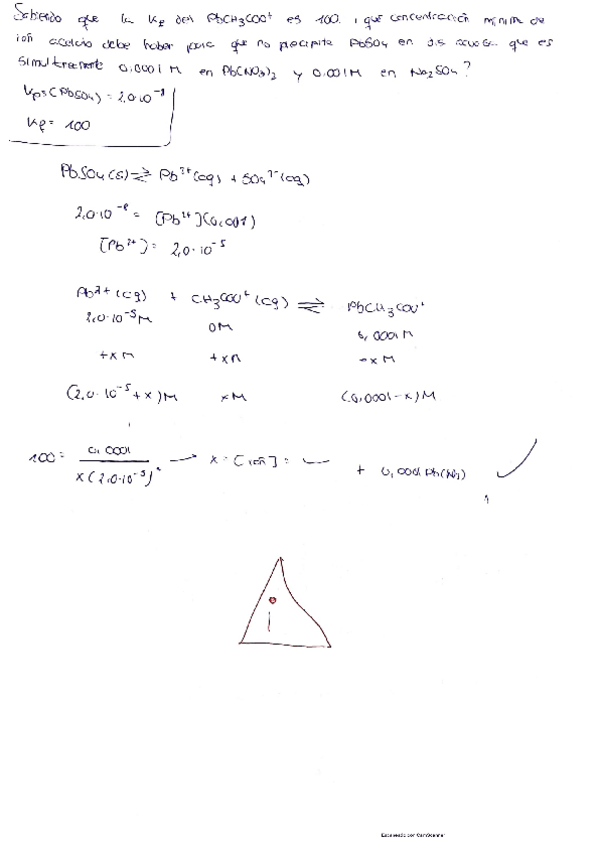 Sabiendo que la Kf del PbCH3COO+ es 100. ¿que concentración minim de
ion acetato debe haber para que no precipite PbSO4 en que es
0,0001 M en Pb(NO3)2 y 0.001M en Na2SO4?
Kps(PbSO4) = 2,0·10⁻⁸
Kf = 100
PbSO4(s) ⇌ Pb²⁺(aq) + SO4²⁻(aq)
2,0·10⁻⁸ = [Pb²⁺](0,001)
[Pb²⁺] = 2,0·10⁻⁵
Pb²⁺(aq) + CH3COO⁺(aq) ⇌ PbCH3COO⁺
2,0·10⁻⁵M 0M 0,0001M
+x M +x M -x M
(2,0·10⁻⁵+x)M xM (0,0001-x)M
100 = 0,0001 / x(2,0·10⁻⁵) → x = [ion] = + 0,0001
Escaneado con CamScanner